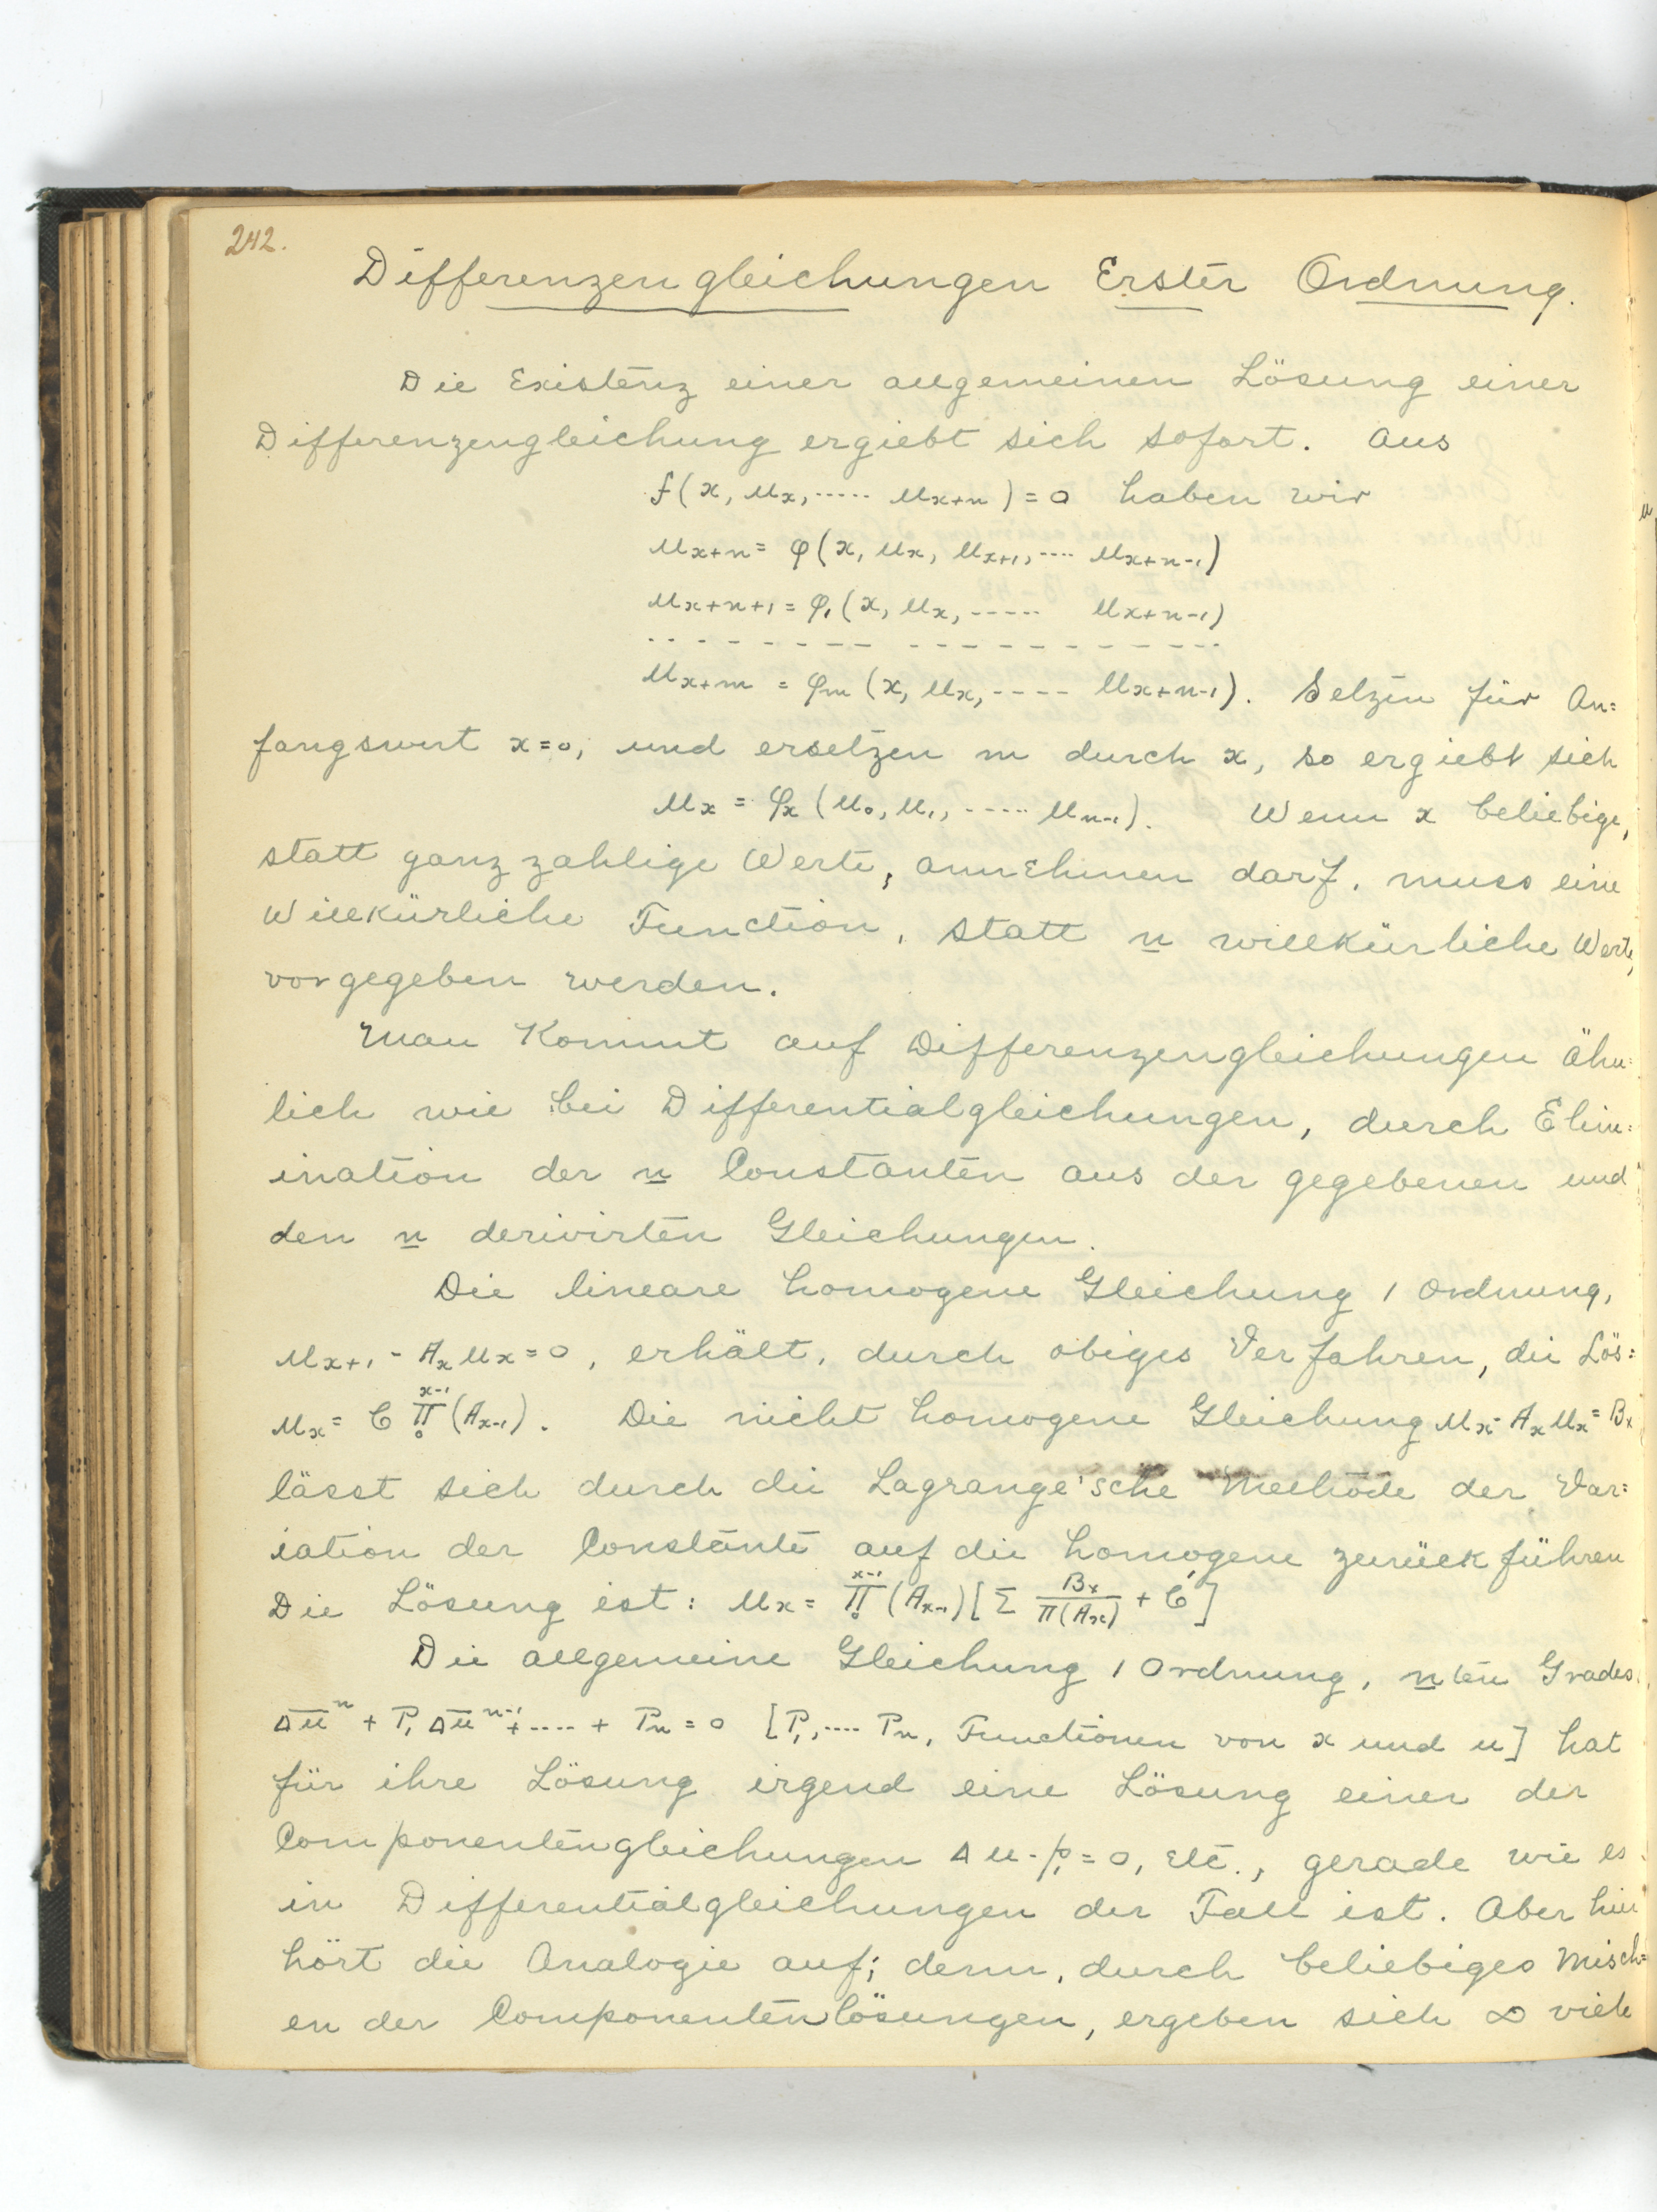 242.
Differenzengleichungen Erster Ordnung.
Die Existenz einer allgemeinen Lösung einer
Differenzengleichung ergiebt sich sofort. Aus
f(x, u_x, ..... u_{x+n}) = 0 haben wir
u_{x+n} = φ(x, u_x, u_{x+1}, .... u_{x+n-1})
u_{x+n+1} = φ_1(x, u_x, ----- u_{x+n-1})
u_{x+m} = φ_m(x, u_x, ---- u_{x+n-1}). Setzen für An=
fangswert x=0, und ersetzen m durch x, so ergiebt sich
u_x = φ_x(u_0, u_1, ----- u_{n-1}). Wenn x beliebige,
statt ganzzahlige Werte, annehmen darf, muss eine
Willkürliche Function, statt n willkürliche Werte,
vorgegeben werden.
Man Kommt auf Differenzengleichungen ähn=
lich wie bei Differentialgleichungen, durch Elim=
ination der n Constanten aus der gegebenen und
den n derivirten Gleichungen.
Die lineare homogene Gleichung 1 Ordnung,
u_{x+1} - A_x u_x = 0, erhält, durch obiges Verfahren, die Lös=
u_x = C ∏_0^{x-1} (A_{x-1}). Die nicht homogene Gleichung u_x - A_x u_x = B_x
lässt sich durch die Lagrange'sche Methode der Var=
iation der Constante auf die homogene zurückführen
Die Lösung ist: u_x = ∏_0^{x-1} (A_{x-1}) [Σ B_x / π(A_x) + C]
Die allgemeine Gleichung 1 Ordnung, nten Grades
Δu^n + P_1 Δu^{n-1} + .... + P_n = 0 [P_1, .... P_n, Functionen von x und u] hat
für ihre Lösung irgend eine Lösung einer der
Componentengleichungen Δu - p_1 = 0, etc., gerade wie es
in Differentialgleichungen der Fall ist. Aber hier
hört die Analogie auf; denn, durch beliebiges Misch=
en der Componentenlösungen, ergeben sich ∞ viele